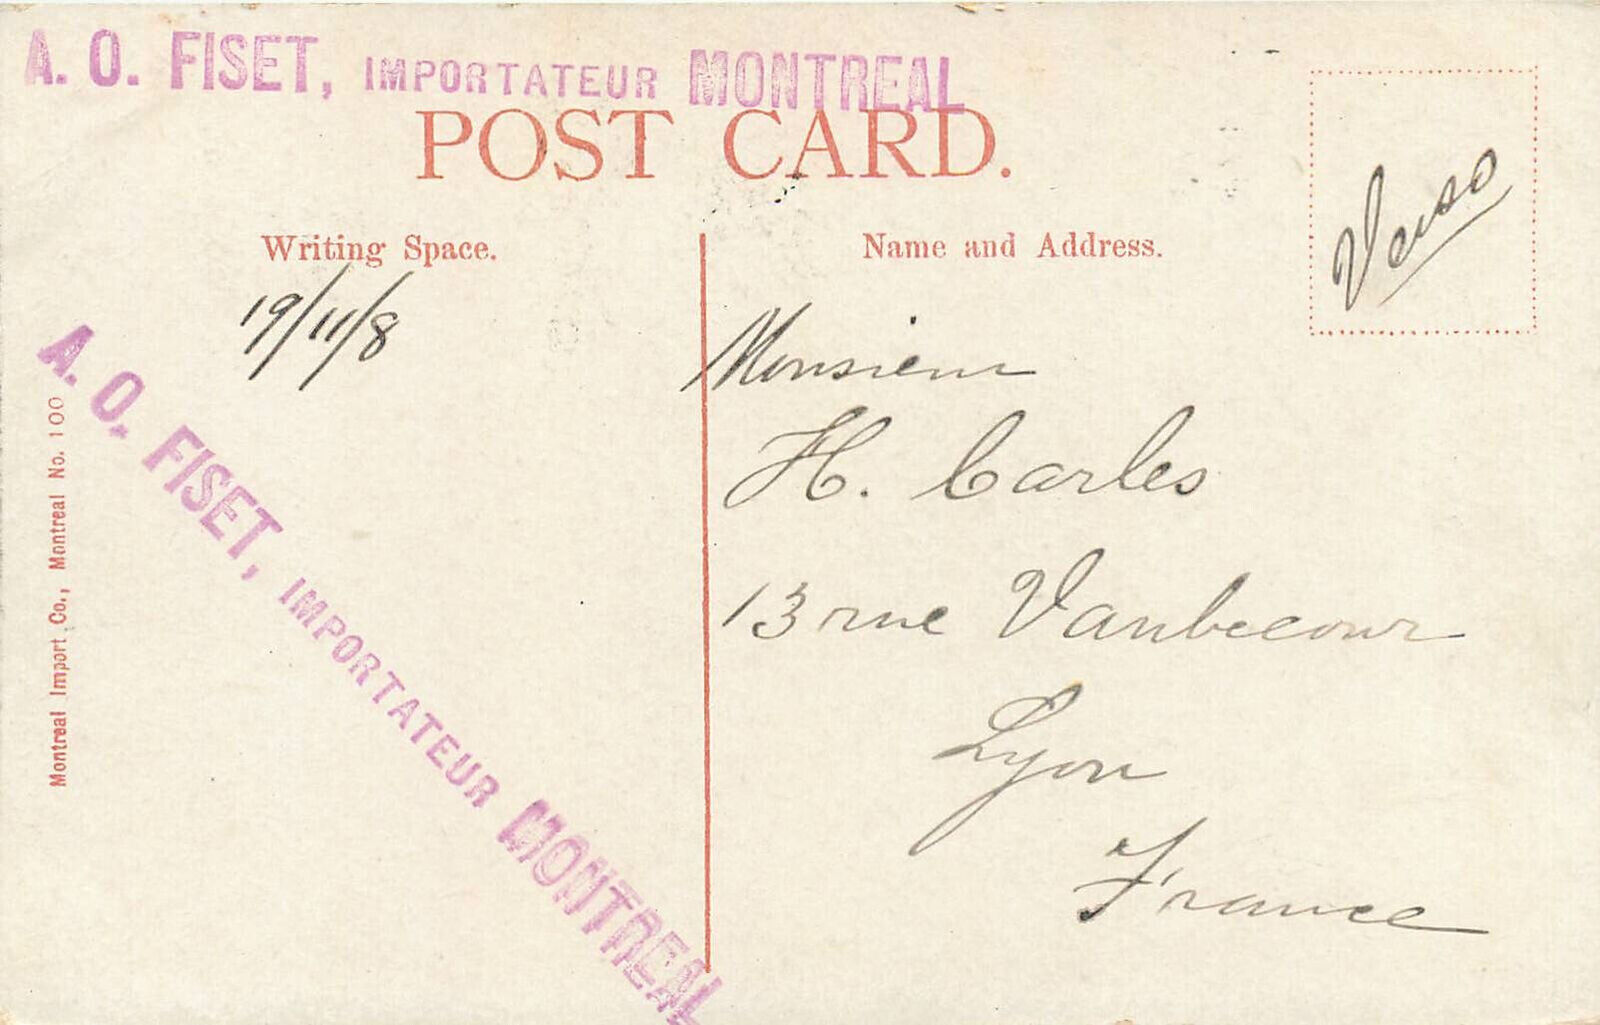 A. O. FISET, IMPORTATEUR MONTREAL
POST CARD.
Verso
Writing Space.
19/11/8
A. O. FISET, IMPORTATEUR MONTREAL
Montreal Import Co., Montreal No. 100
Name and Address.
Monsieur
H. Carles
13 rue Vaubecour
Lyon
France